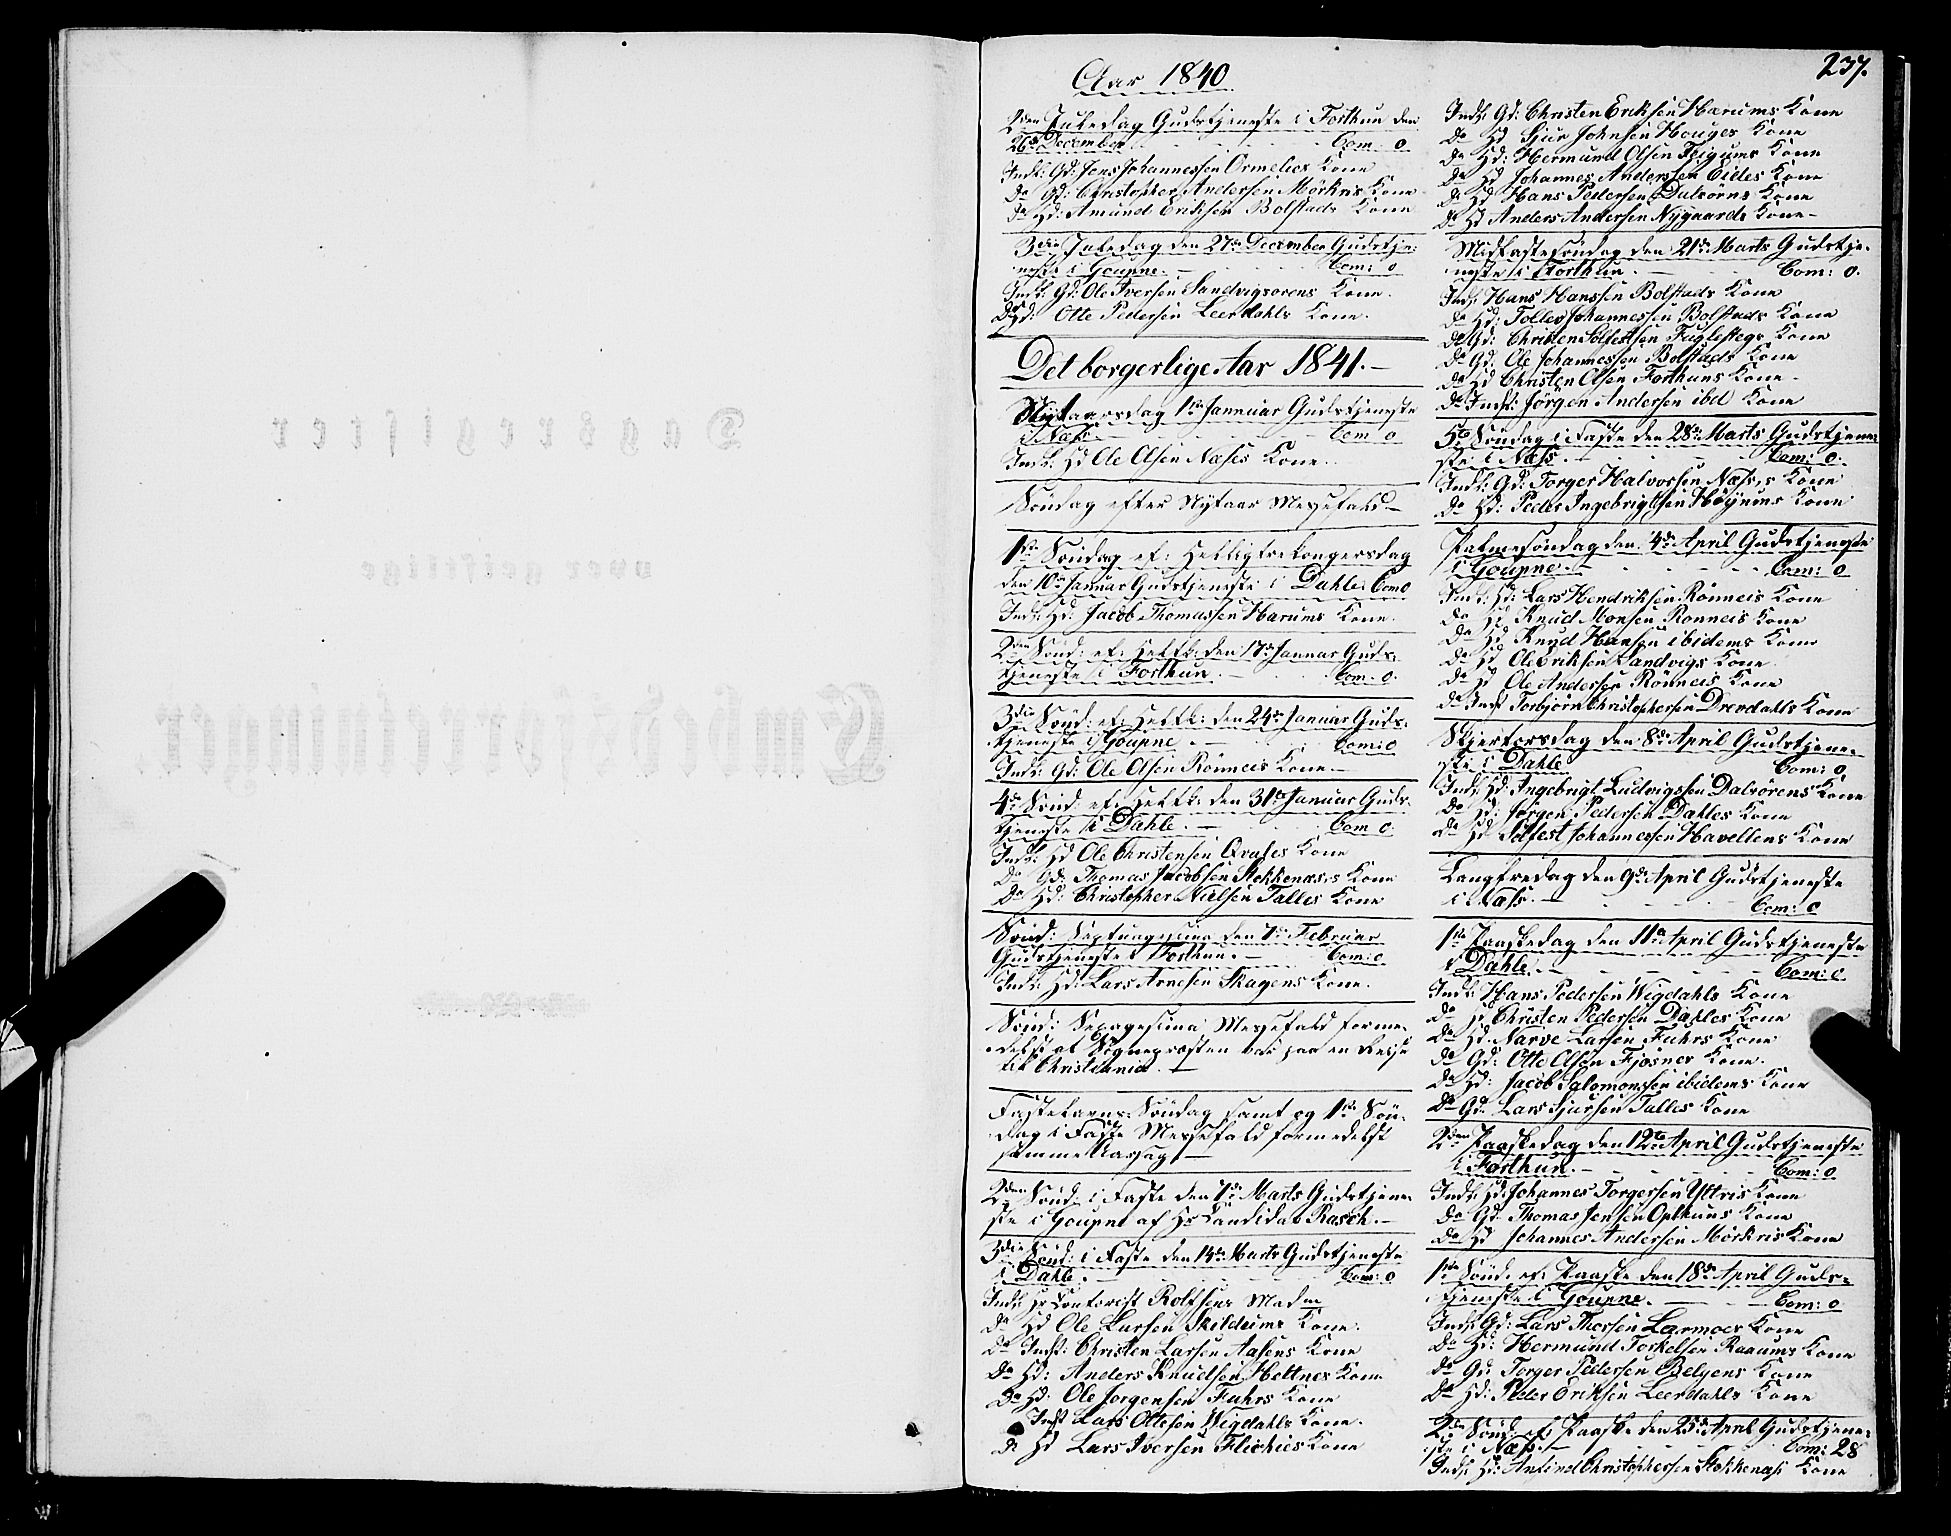 237.
Aar 1840
2den Juledag Gudstjeneste i Forthun den
26de December Com. 0.
Indl: Gd: Jens Johannessen Ormelies Kone
Do Gd: Christopher Andersen Mörkris Kone
Do Hd: Amund Eriksen Bolstads Kone
3die Juledag den 27de December Gudstje-
neste i Goupne. Com: 0
Indl: Gd: Ole Iversen Sandvigsorens Kone.
Do Hd: Otte Pedersen Leerdahls Kone.
Det borgerlige Aar 1841.
Nytaarsdag 1ste Januar Gudstjeneste
i Næss. Com 0
Indl: Hd Ole Olsen Næses Kone.
Söndag efter Nytaar Messefald
1ste Söndag ef: Hellig tre kongersdag
den 10de Januar Gudstjeneste i Dahle. Com 0
Indl: Hd: Jacob Thomassen Harums Kone.
2den Sönd: ef: Hell k: den 17de Januar Guds-
tjeneste i Forthun. Com. 0.
3die Sönd: ef: Hell k: den 24de Januar Guds-
tjeneste i Goupne. Com: 0
Indl: Gd: Ole Olsen Rönneis Kone.
4de Sönd: ef: Hell k: den 31te Januar Guds-
tjeneste i Dahle. Com 0.
Indl: Hd Ole Christensen Qvales Kone
Do Gd: Thomas Jacobsen Stokkenæses Kone
Do Hd: Christopher Nielsen Talles Kone
Sönd: Septuagesima den 7de Februar
Gudstjeneste i Forthun. Com: 0
Indl: Hd: Lars Arnesen Skagens Kone.
Sönd: Sexagesima Messefald forme-
delst at Sognepræsten var paa en Reise
til Christiania.
Fastelavns-Söndag samt og 1ste Sön-
dag i Faste Messefald formedelst
samme Aarsag
2den Sönd: i Faste den 7de Marts Gudstjene-
ste i Goupne af Hr Candidat Rasch.
3die Sönd: i Faste den 14de Marts Gudstjeneste
i Dahle. Com: 0
Indl: Hr Contorist Rolfsens Madm
Do Hd Ole Larsen Skildeims Kone.
Do Indst: Christen Larsen Aasens Kone
Do Hd: Anders Knudsen Hæltnes Kone
Do Hd: Ole Jorgensen Fuhrs Kone
Indst Lars Ottesen Wigdahls Kone.
Do Hd Lars Iversen Flickies Kone
Indl: Gd: Christen Eriksen Harums Kone
Do Hd Sjur Johnsen Houges Kone
Do Hd: Hermund Olsen Feigums Kone
Do Hd Johannes Anderssen Eides Kone
Do Hd Hans Pedersen Dalsörns Kone
Do Hd Anders Andersen Nygaards Kone
Midfastesöndag den 21de Marts Gudstje-
neste i Forthun. Com: 0.
Indl: Hans Hanssen Bolstads Kone
Do Hd: Tolles Johannessen Bolstads Kone
Do Gd: Christen Solfestsen Fuglestegs Kone
Do Gd: Ole Johannessen Bolstads Kone
Do Hd Christen Olsen Forthuns Kone.
Do Indst: Jörgen Andersen ibd Kone
5te Söndag i Faste den 28de Marts Gudstjene-
ste i Næss. Com: 0.
Indl: Gd: Torger Halvorsen Næss,s Kone
Do Hd: Peder Ingebrigtsen Høyums Kone
Palmesöndag den 4de April Gudstjeneste
i Goupne. Com: 0
Indl: Hd: Lars Hendriksen Rönneis Kone
Do Hd Knud Monsen Rönneis Kone
Do Hd Knud Hansen ibidems Kone
Do Hd Ole Eriksen Sandvigs Kone
Do Hd Ole Andersen Rönneis Kone
Do Indst Torbjörn Christophersen Drevdahls Kone
Skjertorsdag den 8de April Gudstjene-
ste i Dahle Com: 0
Indl: Hd: Ingebrigt Ludvigssen Dalsörens Kone
Do Hd: Jørgen Pedersen Dahles Kone
Do Hd Solfest Johannessen Havellens Kone
Langfredag den 9de April Gudstjeneste
i Næss. Com: 0
1ste Paaskedag den 11te April Gudstjeneste
i Dahle. Com: 0
Indl: Hans Pedersen Wigdahls Kone
Do Hd Christen Pedersen Dahles Kone
Do Hd. Narve Larsen Fuhrs Kone
Do Gd: Otte Olsen Fjøsnes Kone.
Do Hd: Jacob Salomonssen ibidems Kone
Do Gd. Lars Sjursen Talles Kone
2den Paaskedag den 12te April Gudstjeneste
i Forthun. Com: 0
Indl: Hd. Johannes Torgersen Yttris Kone
Do Gd. Thomas Jensen Opthuns Kone
Do Hd Johannes Andersen Mörkris Kone
1ste Sönd. ef: Paaske den 18de April Guds-
tjeneste i Goupne. Com: 0
Indl: Gd: Lars Thorsen Larmoes Kone
Do Hd: Hermund Torkelsen Raaums Kone
Do Gd Torger Pedersen Bolgens Kone
Do Hd: Peder Eriksen Leerdahls Kone
2den Sönd: ef: Paaske den 25de April Gudstjene-
ste i Næss. Com: 28
Indl: Hd: Anfind Christophersen Stokkenæss Kone
Dagsregister
over geistlige
Embedsforretninger.